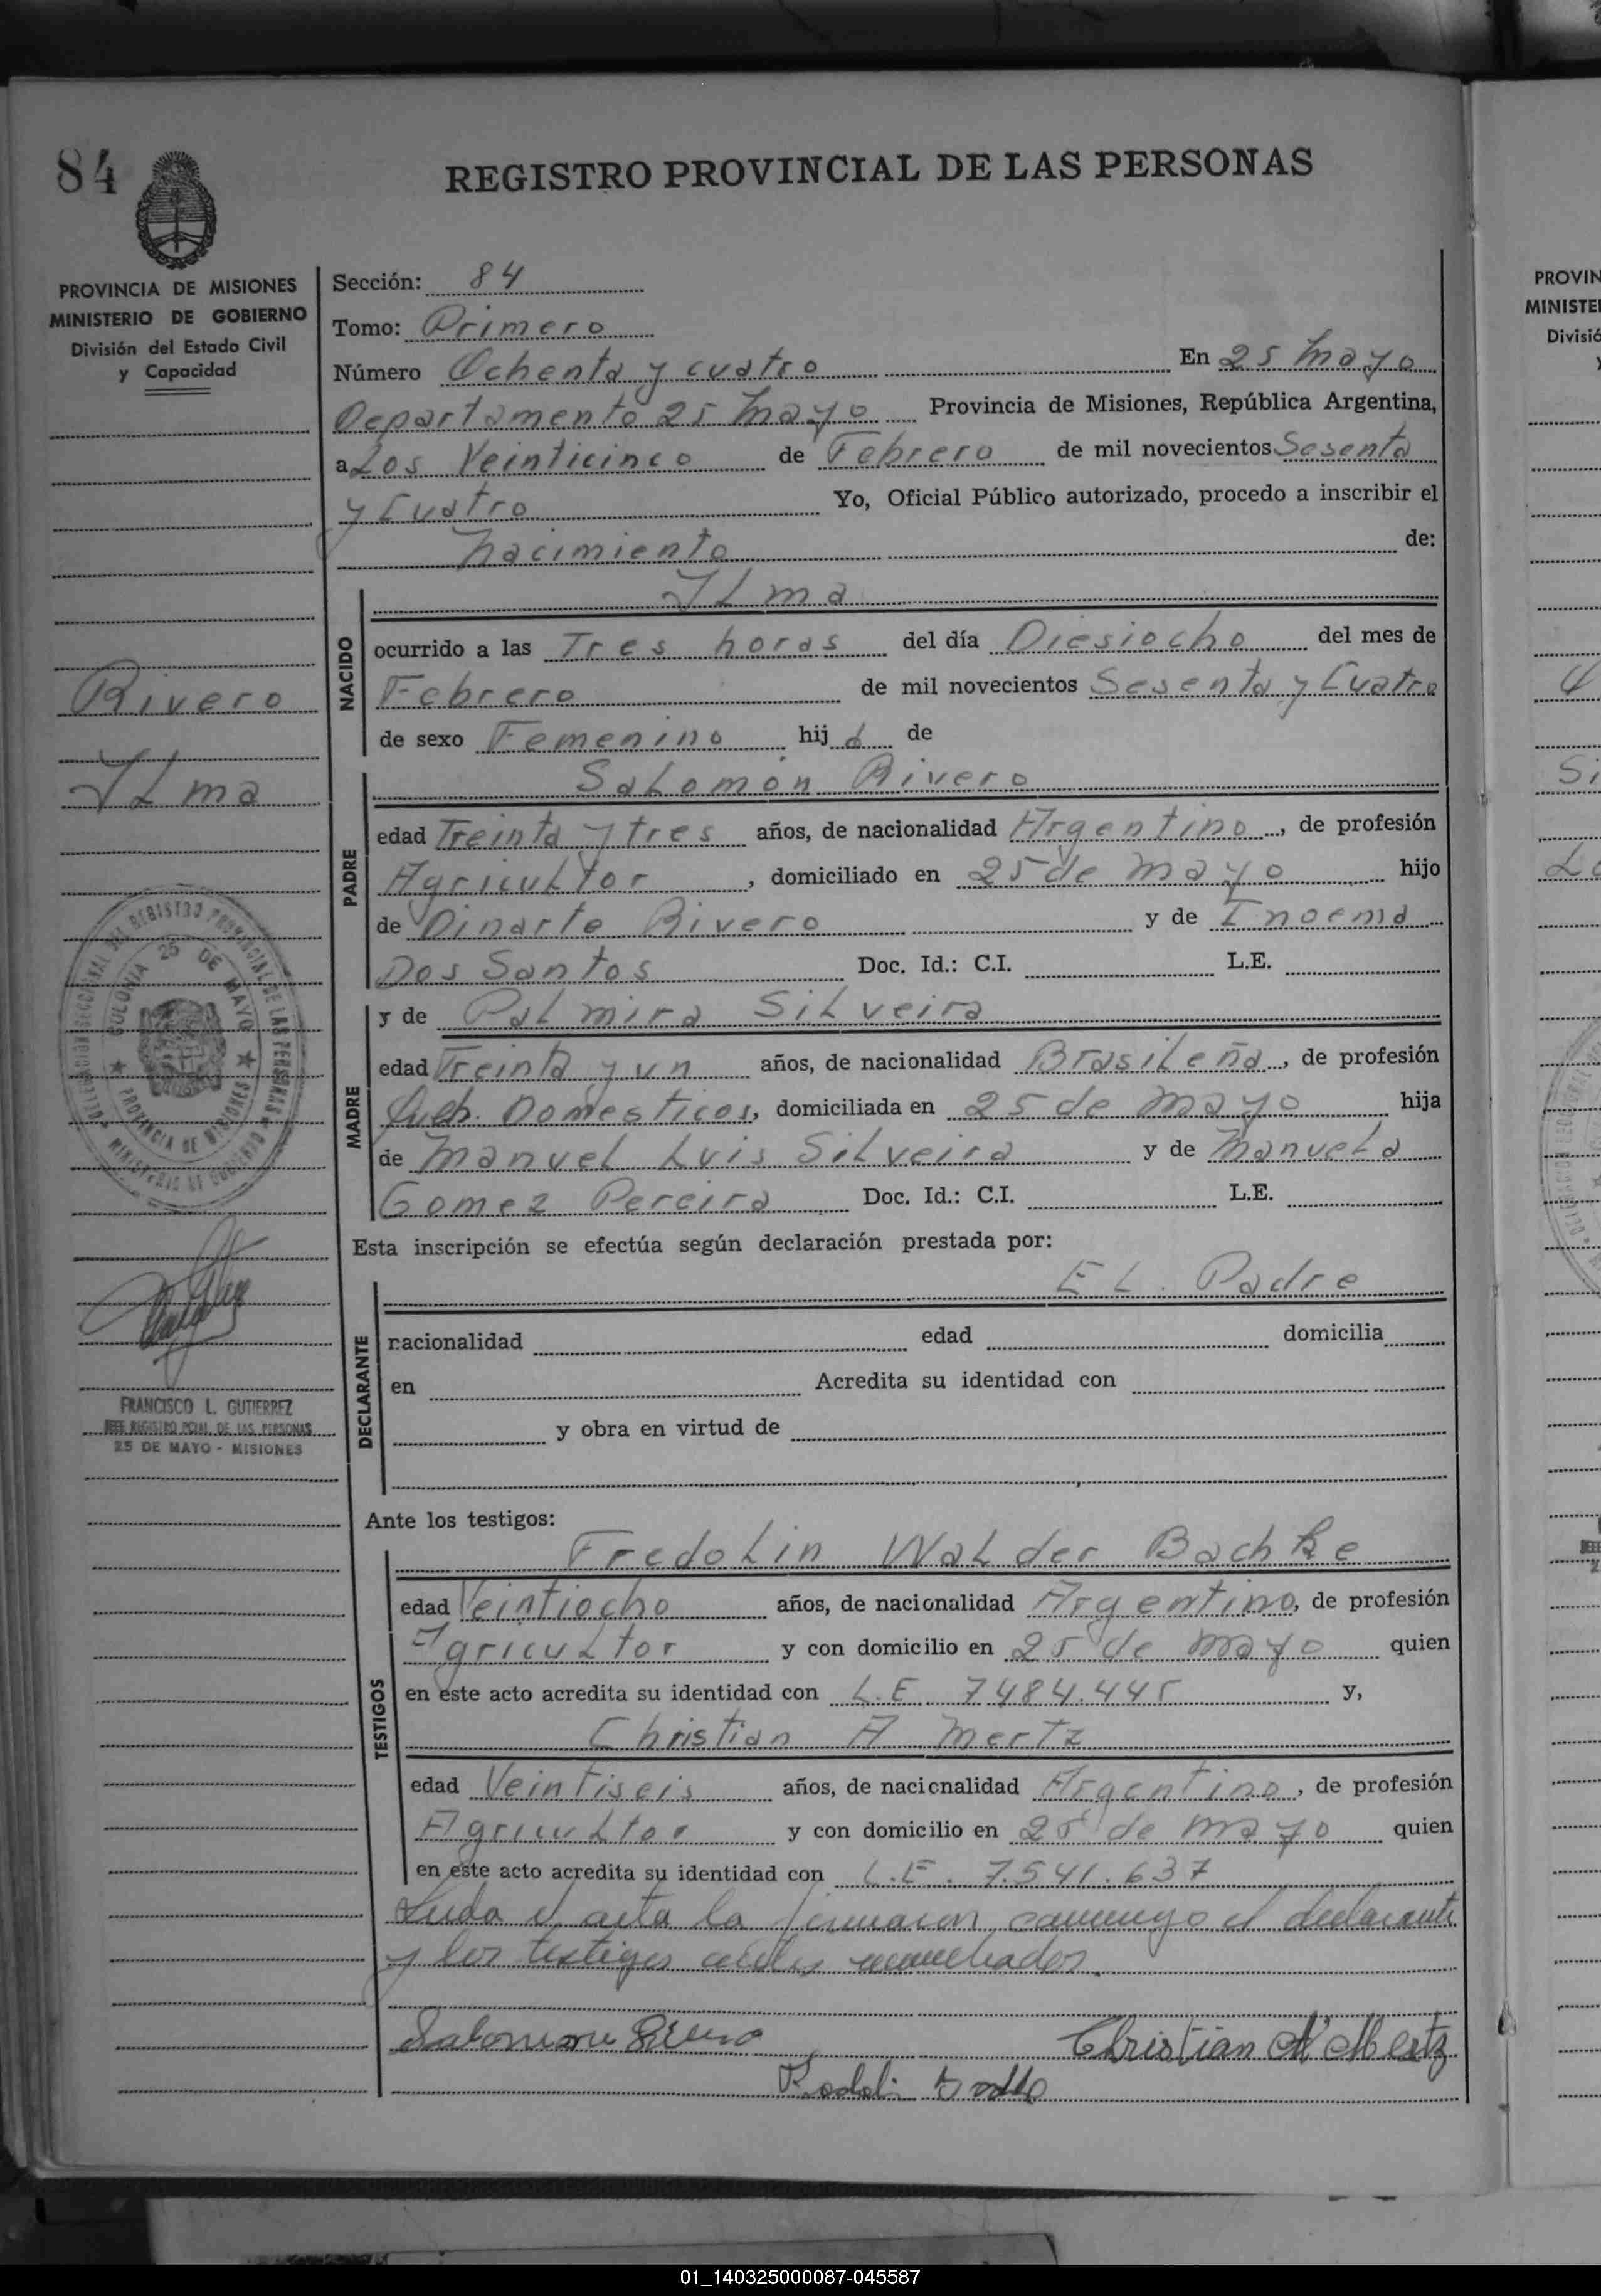 84
REGISTRO PROVINCIAL DE LAS PERSONAS
PROVINCIA DE MISIONES
MINISTERIO DE GOBIERNO
División del Estado Civil
y Capacidad
Sección: 84
Tomo: Primero
Número Ochenta y cuatro En 25 Mayo
Departamento 25 Mayo Provincia de Misiones, República Argentina,
a Los Veinticinco de Febrero de mil novecientos Sesenta
y Cuatro Yo, Oficial Público autorizado, procedo a inscribir el
Nacimiento de:
NACIDO
ILma
ocurrido a las Tres horas del día Diesiocho del mes de
Febrero de mil novecientos Sesenta y Cuatro
de sexo Femenino hija de
Rivero
ILma
PADRE
Salomón Rivero
edad Treinta y tres años, de nacionalidad Argentino, de profesión
Agricultor, domiciliado en 25 de Mayo hijo
de Dinarte Rivero y de Enoema
Dos Santos Doc. Id.: C.I. L.E.
MADRE
y de Palmira Silveira
edad Treinta y un años, de nacionalidad Brasileña, de profesión
Domesticos, domiciliada en 25 de Mayo hija
de Manuel Luis Silveira y de Manuela
Gomez Pereira Doc. Id.: C.I. L.E.
COLONIA 25 DE MAYO
PROVINCIA DE MISIONES
MINISTERIO DE GOBIERNO
Esta inscripción se efectúa según declaración prestada por:
DECLARANTE
EL. Padre
nacionalidad edad domicilia
en Acredita su identidad con
y obra en virtud de
FRANCISCO L. GUTIERREZ
JEFE REGISTRO PCIAL. DE LAS PERSONAS
25 DE MAYO - MISIONES
Ante los testigos:
TESTIGOS
Fredolin Walder Bachke
edad Veintiocho años, de nacionalidad Argentino, de profesión
Agricultor y con domicilio en 25 de Mayo quien
en este acto acredita su identidad con L.E. 7484.445 y,
Christian A Mertz
edad Veintiseis años, de nacionalidad Argentino, de profesión
Agricultor y con domicilio en 25 de Mayo quien
en este acto acredita su identidad con L.E. 7.541.637
Leida el acta la firmaron conmigo el declarante
y los testigos
Salomon Rivero
Christian A Mertz
PROVIN
MINISTE
Divisió
01_140325000087-045587